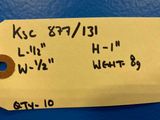 KSC 877/131
L-1/2" H-1"
W-1/2" WEIGHT-8g
QTY-10